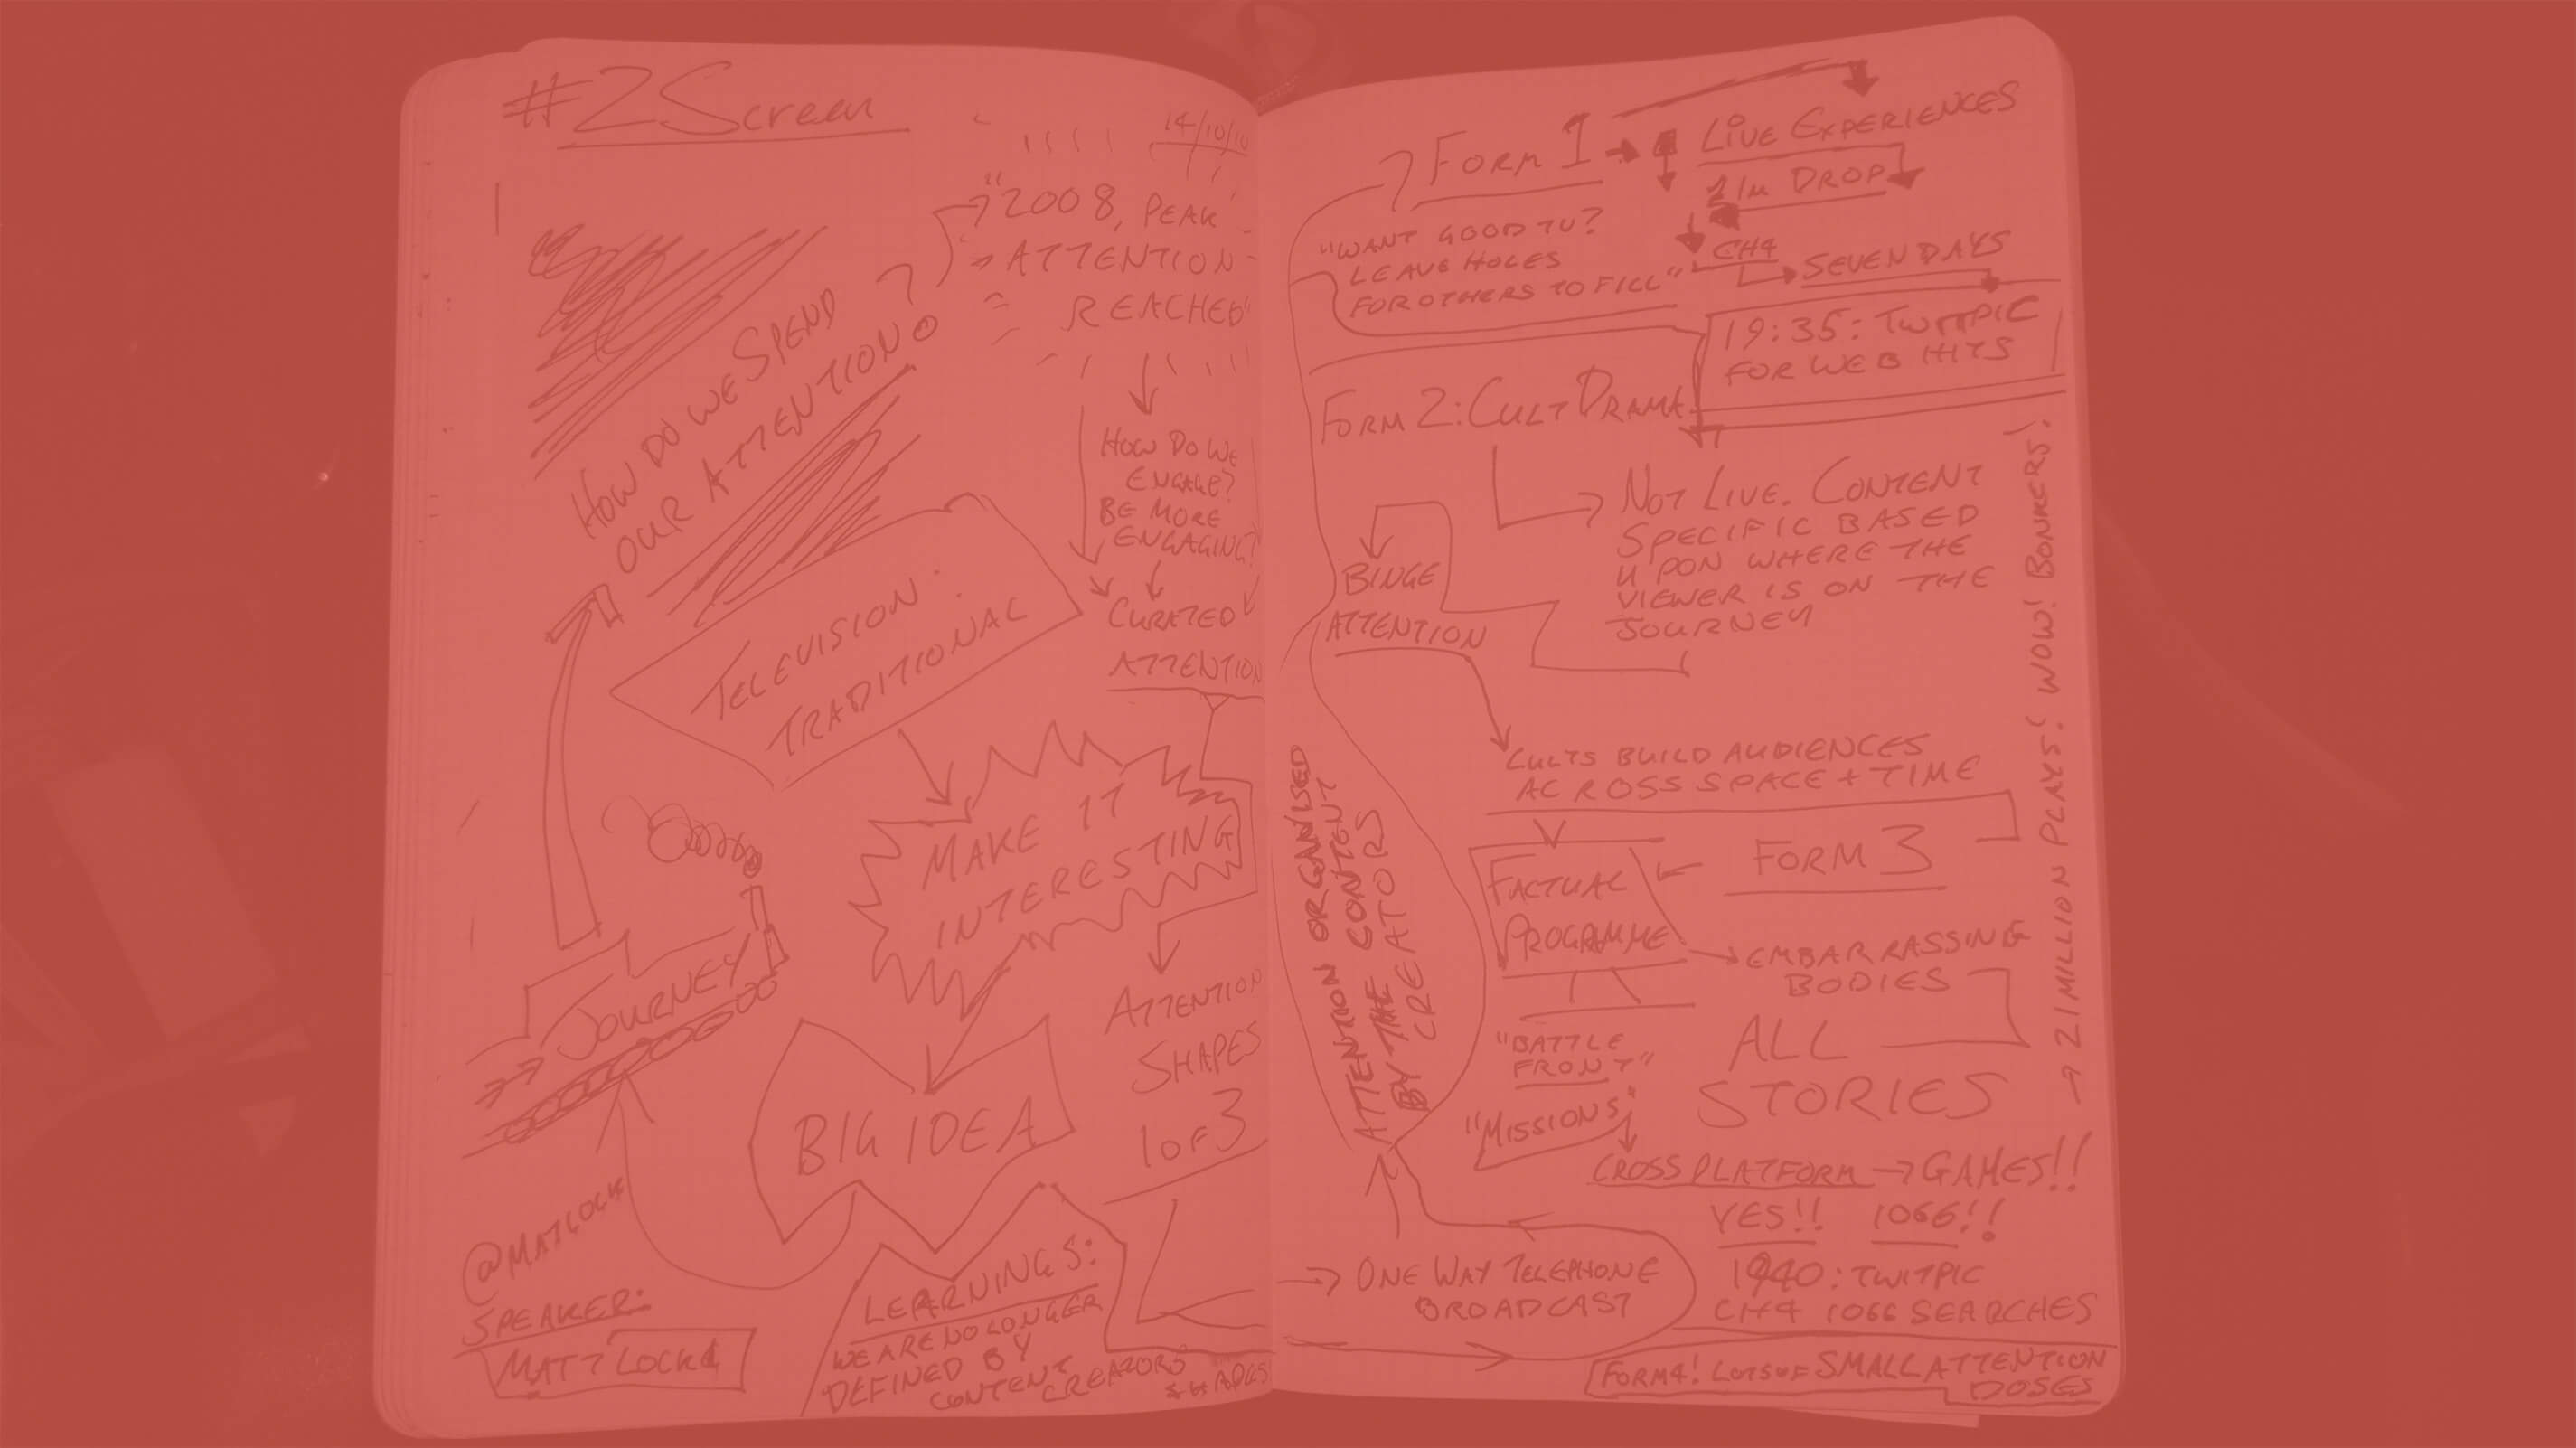 #2Screen
14/10/10
"2008, PEAK
ATTENTION
REACHED"
HOW DO WE SPEND
OUR ATTENTION?
HOW DO WE
ENGAGE?
BE MORE
ENGAGING!
CURATED
ATTENTION
TELEVISION:
TRADITIONAL
MAKE IT
INTERESTING
JOURNEY
ATTENTION
SHAPES
1 OF 3
BIG IDEA
@MATLOCK
SPEAKER:
MATT LOCKE
LEARNINGS:
WE ARE NO LONGER
DEFINED BY
CONTENT
CREATORS
FORM 1
LIVE EXPERIENCES
DROP
"WANT GOOD TV?
LEAVE HOLES
FOR OTHERS TO FILL"
CH4
SEVEN DAYS
19:35: TWITPIC
FOR WEB HITS
FORM 2: CULT DRAMA
NOT LIVE. CONTENT
SPECIFIC BASED
UPON WHERE THE
VIEWER IS ON THE
JOURNEY
BINGE
ATTENTION
CULTS BUILD AUDIENCES
ACROSS SPACE + TIME
ATTENTION ORGANISED
BY THE CONTENT
BY CREATORS
FORM 3
FACTUAL
PROGRAMME
EMBARRASSING
BODIES
ALL
STORIES
"BATTLE
FRONT"
"MISSIONS"
CROSS PLATFORM → GAMES!!
YES!! 1066!!
1940: TWITPIC
CH4 1066 SEARCHES
→ 21 MILLION PLAYS! WOW! BONKERS!
→ ONE WAY TELEPHONE
BROADCAST
FORM 4! LOTS OF SMALL ATTENTION
DOSES